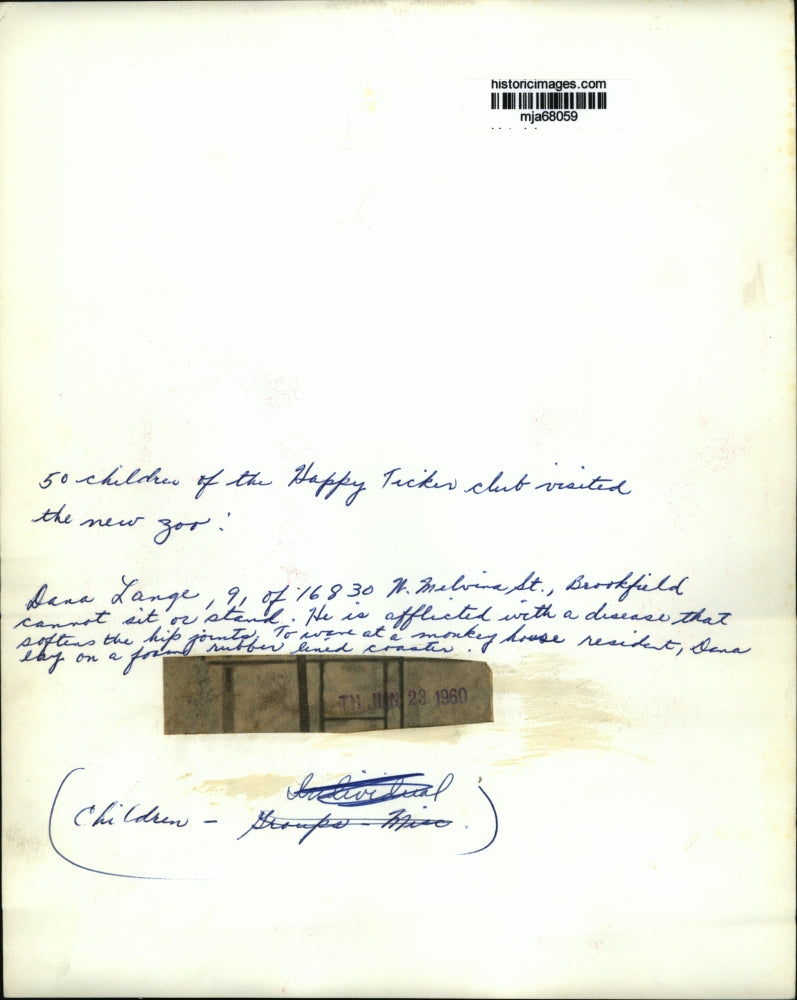 historicimages.com
mja68059
50 children of the Happy Ticker club visited
the new zoo!
Dana Lange, 9, of 16830 W. Melvina St., Brookfield
cannot sit or stand. He is afflicted with a disease that
softens the hip joints. To wave at a monkey house resident, Dana
lay on a foam rubber lined coaster.
TH JUN 23 1960
Individual
(Children - Groups - Misc.)